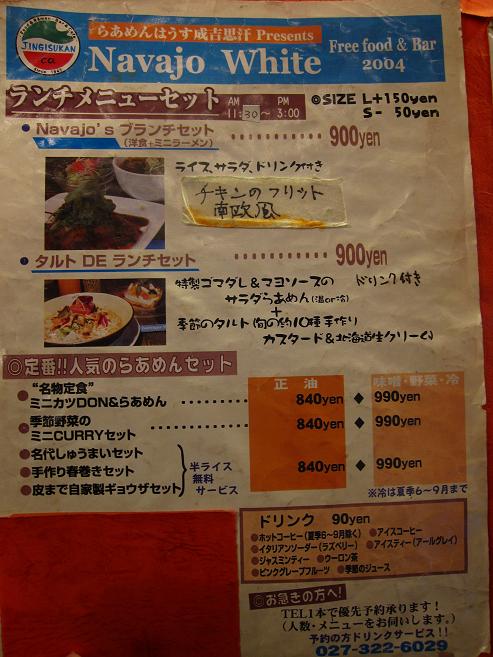 らあめんはうす成吉思汗 Presents
JINGISUKAN
CO.
Navajo White
Free food & Bar
2004
ランチメニューセット AM 11:30~ PM 3:00
◎SIZE L+150yen
S- 50yen
・Navajo's ブランチセット ………… 900yen
(洋食+ミニラーメン)
ライス、サラダ、ドリンク付き
チキンのフリット
南欧風
・タルト DE ランチセット ………… 900yen
特製ゴマダレ&マヨソースの ドリンク付き
サラダらあめん(温or冷)
+
季節のタルト(旬の約10種手作り
カスタード&北海道生クリーム)
◎定番!!人気のらあめんセット
正油 味噌・野菜・冷
●"名物定食"
ミニカツDON&らあめん ………… 840yen ◆ 990yen
●季節野菜の
ミニCURRYセット ………… 840yen ◆ 990yen
●名代しゅうまいセット
●手作り春巻きセット
●皮まで自家製ギョウザセット
半ライス
無料
サービス
840yen ◆ 990yen
※冷は夏季6~9月まで
ドリンク 90yen
●ホットコーヒー(夏季6~9月除く) ●アイスコーヒー
●イタリアンソーダー(ラズベリー) ●アイスティー(アールグレイ)
●ジャスミンティー ●ウーロン茶
●ピンクグレープフルーツ ●季節のジュース
◎お急ぎの方へ!
TEL1本で優先予約承ります!
(人数・メニューをお伺いします。)
予約の方ドリンクサービス!!
027-322-6029